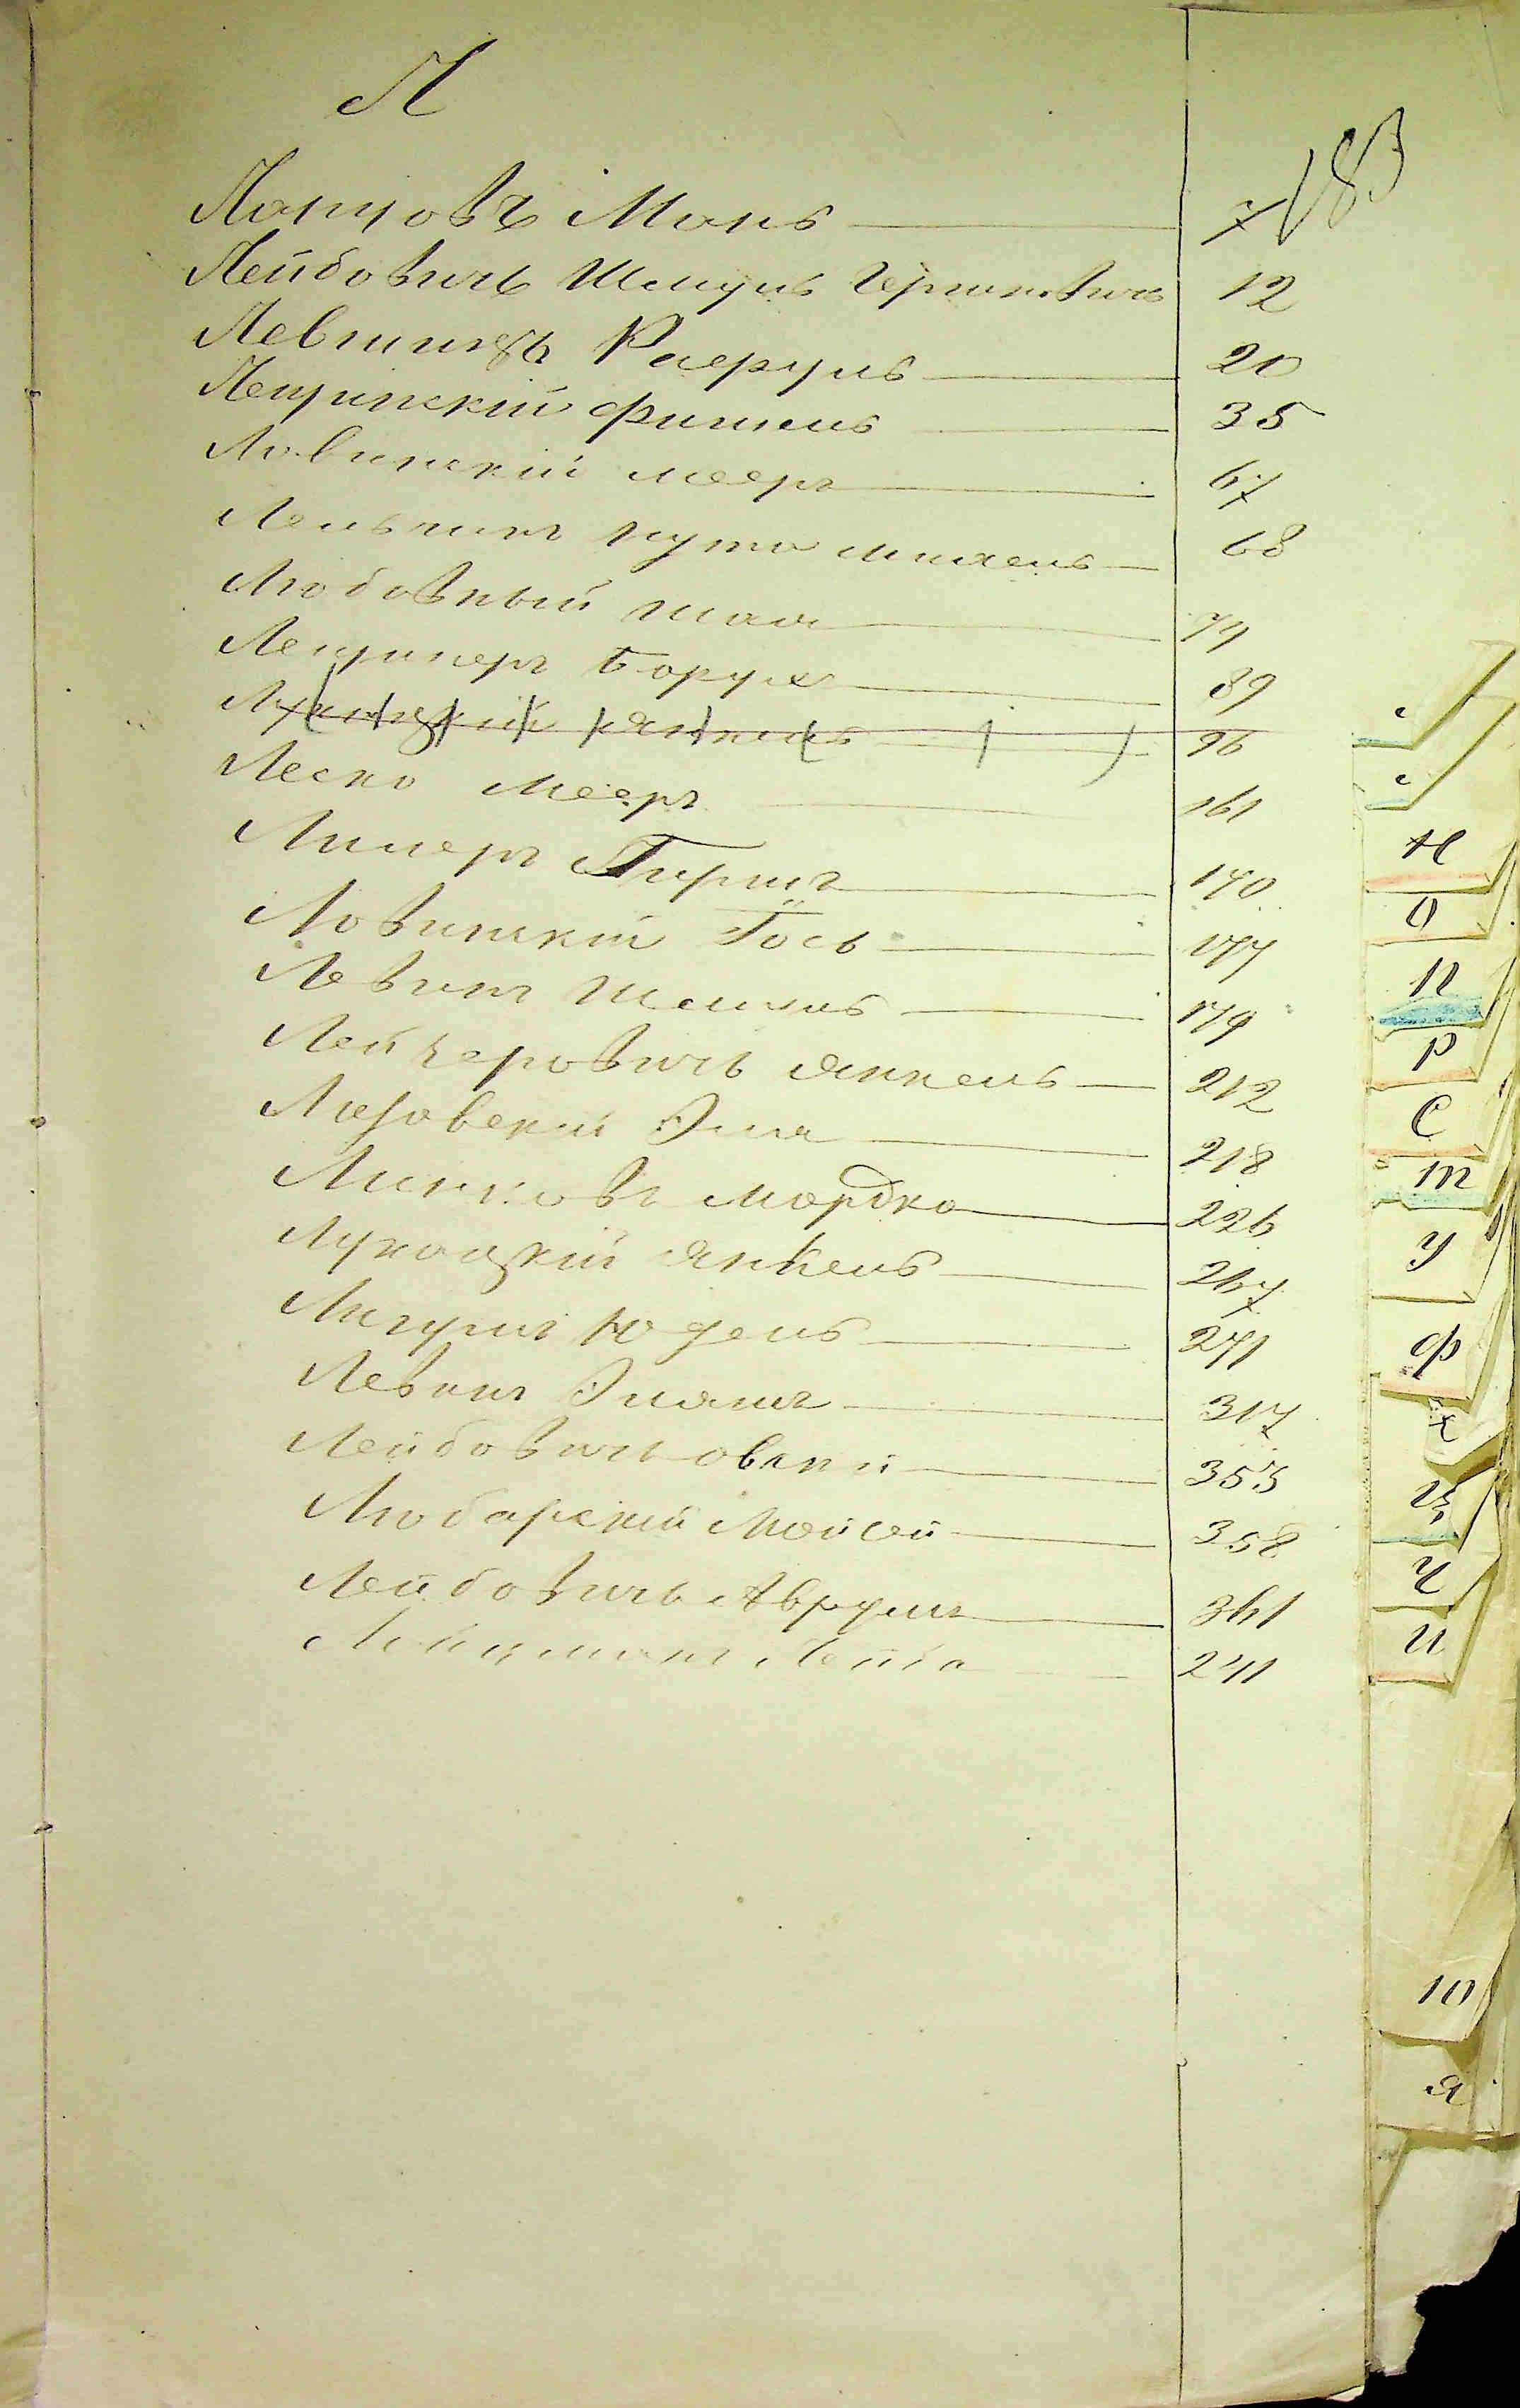 Л
183
Лапцовъ Мань 7
Лейбовичъ Шмуль Германовичъ 12
Левшинъ Рафуль 20
Лещинскій Фишель 35
Ловинскій Мееръ 67
Лельчикъ Нута Михель 68
Любовный Шая 79
Лещинеръ Борухъ 89
Лукацкій Янкель 96
Леско Мееръ 161
Лимеръ Гиршъ 170
Ловинскій Гось 177
Левинъ Шмиль 179
Лейзеровичъ Янкель 212
Лазовскій Эля 218
Линковъ Мордко 226
Лукацкій Янкель 267
Лигумъ Юдель 271
Левинъ Эльяшъ 317
Лейбовичъ Овсей 353
Любарскій Мойсей 358
Лейбовичъ Аврумъ 361
Лейба 241
Н
О
П
Р
С
Т
У
Ф
Х
Ц
Ч
И
Ю
Я